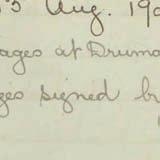 Aug. 19
ages at Druma
ges signed b